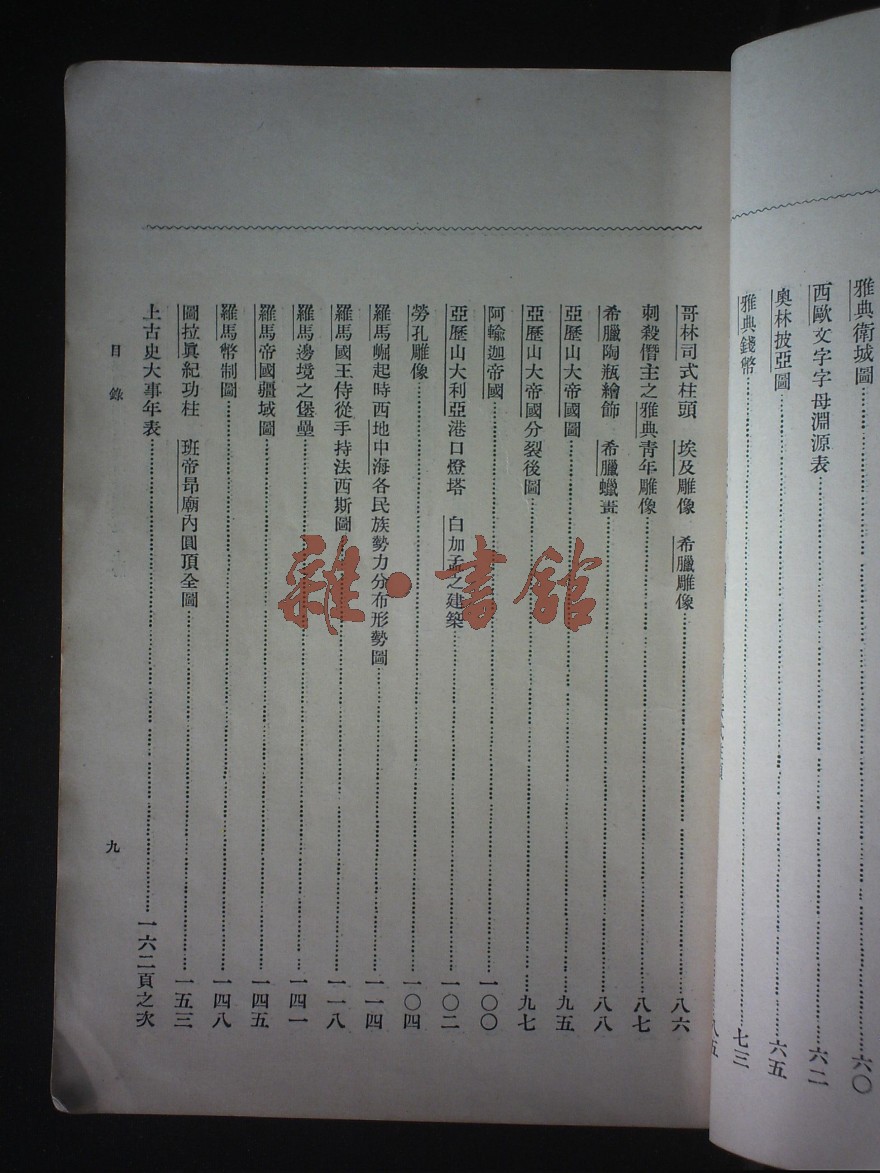 雅典衛城圖……六〇
西歐文字字母淵源表……六二
奧林披亞圖……六五
雅典錢幣……七三
八五
哥林司式柱頭 埃及雕像 希臘雕像……八六
刺殺僭主之雅典青年雕像……八七
希臘陶瓶繪飾 希臘蠟畫……八八
亞歷山大帝國圖……九五
亞歷山大帝國分裂後圖……九七
阿輸迦帝國……一〇〇
亞歷山大利亞港口燈塔 白加孟之建築……一〇二
勞孔雕像……一〇四
羅馬崛起時西地中海各民族勢力分布形勢圖……一一四
羅馬國王侍從手持法西斯圖……一一八
羅馬邊境之堡壘……一四一
羅馬帝國疆域圖……一四五
羅馬幣制圖……一四八
圖拉眞紀功柱 班帝昂廟內圓頂全圖……一五三
上古史大事年表……一六二頁之次
目錄
九
雜·書館